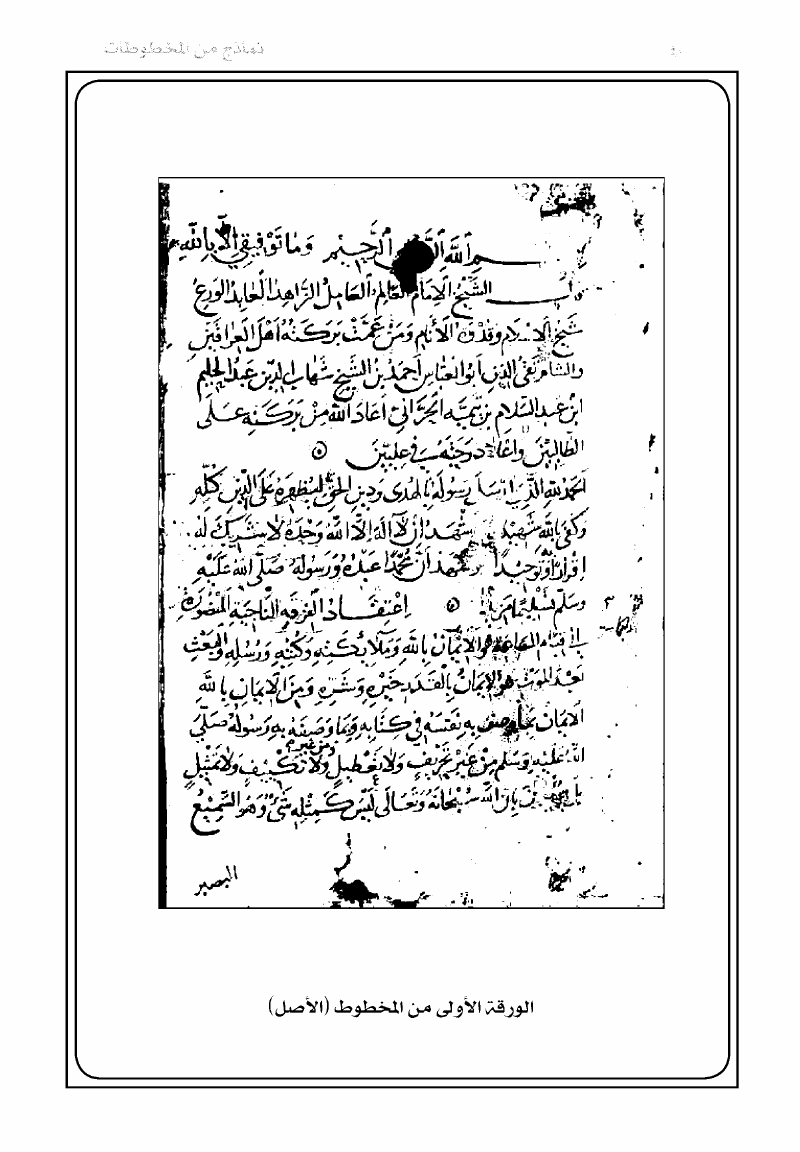 نماذج من المخطوطات
بسم الله الرحمن الرحيم وما توفيقي إلا بالله
الشيخ الامام العالم العامل الزاهد العابد الورع
شيخ الاسلام وقدوة الأنام ومن عمت بركته أهل العراقين
والشام تقي الدين ابو العباس احمد بن الشيخ شهاب الدين عبد الحليم
ابن عبد السلام بن تيميه الحراني اعاد الله من بركته على
الطالبين درجته في عليين
الحمد لله الذي ارسل رسوله بالهدى ودين الحق ليظهره على الدين كله
وكفى بالله شهيدا اشهد ان لا اله الا الله وحده لا شريك له
اقرارا وتوحيدا واشهد ان محمدا عبده ورسوله صلى الله عليه
وسلم تسليما مزيدا اعتقاد الفرقه الناجية المنصورة
الى قيام الساعة هو الايمان بالله وملائكته وكتبه ورسله والبعث
بعد الموت هو الايمان بالقدر خيره وشره ومن الايمان بالله
الايمان بما وصف به نفسه في كتابه وبما وصفه به رسوله صلى
الله عليه وسلم من غير تحريف ولا تعطيل ومن غير تكييف ولا تمثيل
بان الله سبحانه وتعالى ليس كمثله شيء وهو السميع
البصير
الورقة الأولى من المخطوط (الأصل)